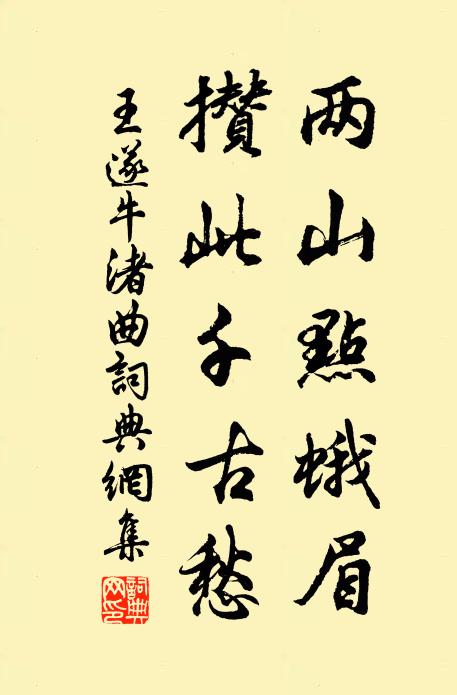 两山點蛾眉
攢此千古愁
王遂牛渚曲詞典網集
詞典網印